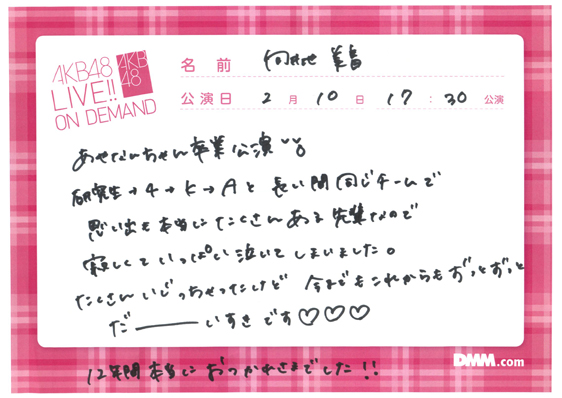 AKB48
LIVE!!
ON DEMAND
AKB
48
名前 向井地 美音
公演日 2月10日 17:30公演
あやなんちゃん卒業公演
研究生→4→K→Aと 長い間同じチームで
思い出も本当にたくさんある先輩なので
寂しくていっぱい泣いてしまいました。
たくさんいじっちゃったけど 今までもこれからもずっとずっと
だーいすきです♡♡♡
12年間本当におつかれさまでした!!
DMM.com